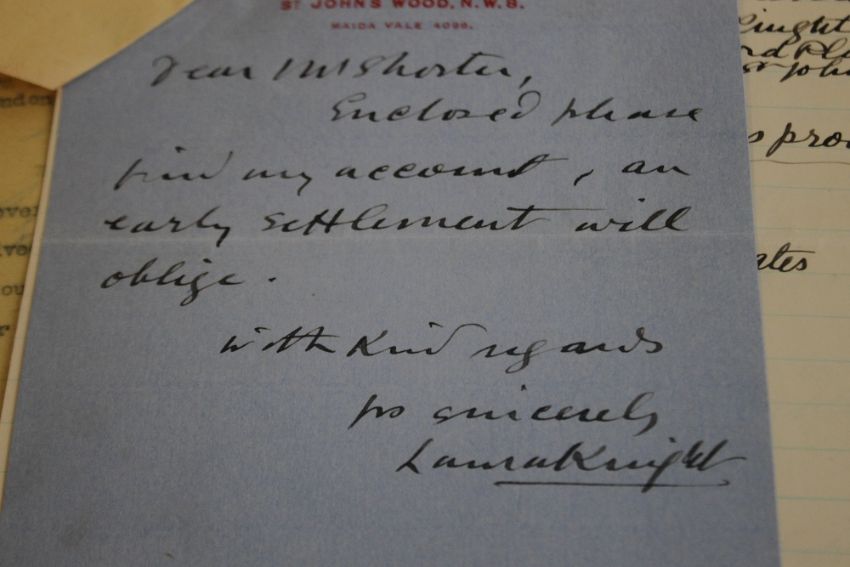 ST JOHN'S WOOD, N.W.8.
MAIDA VALE 4098.
Dear Mr Shorter,
Enclosed please
find my account, an
early settlement will
oblige.
with kind regards
yrs sincerely
Laura Knight
ates